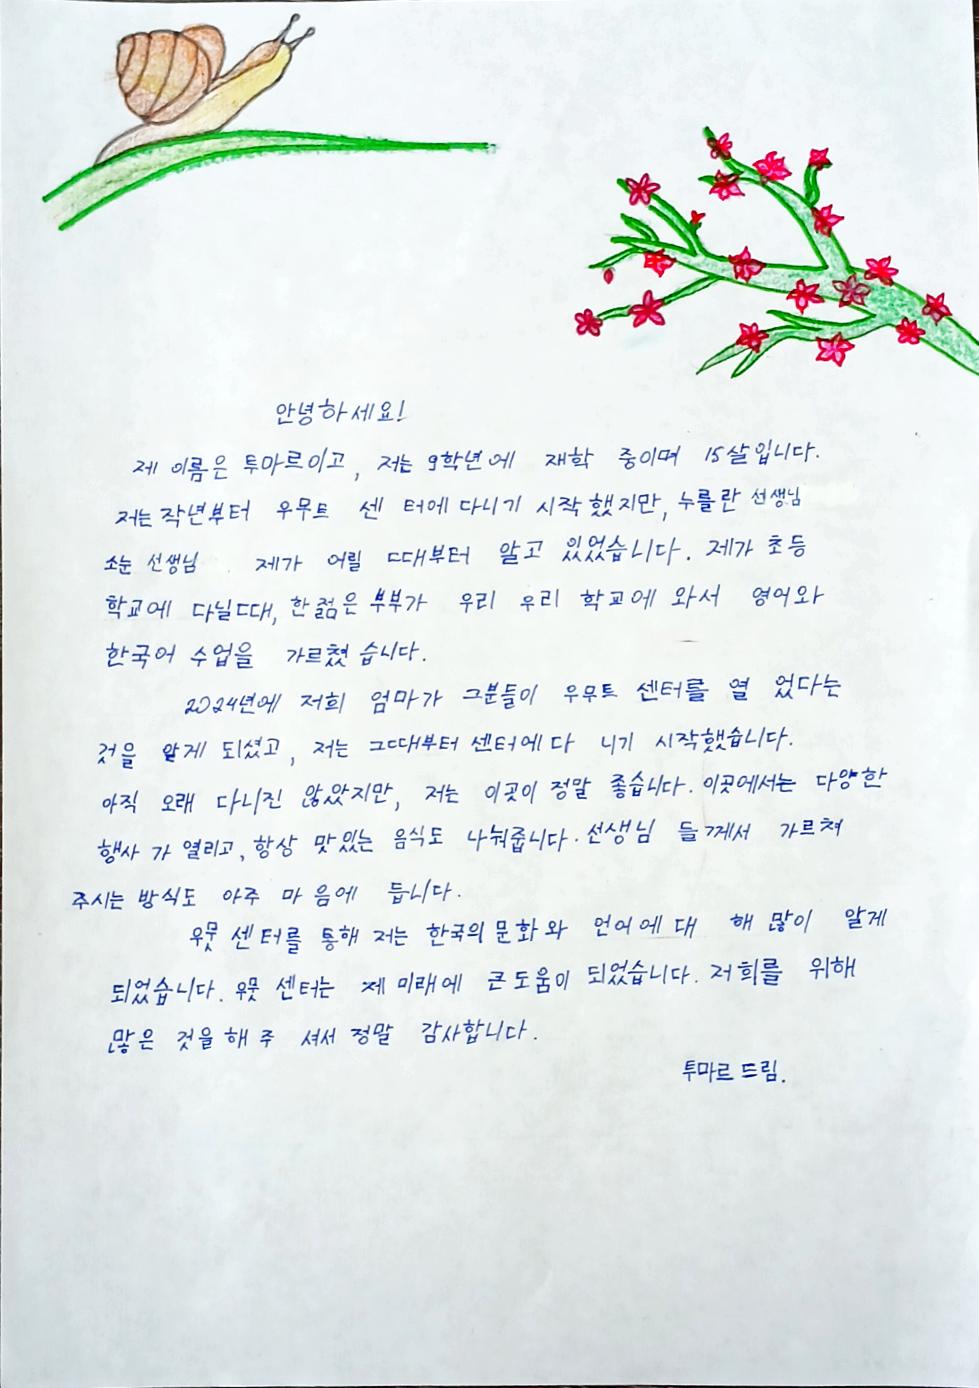 안녕하세요!
제 이름은 투마르이고, 저는 9학년에 재학 중이며 15살입니다.
저는 작년부터 우무트 센터에 다니기 시작했지만, 누를란 선생님
소눈 선생님 제가 어릴 때부터 알고 있었습니다. 제가 초등
학교에 다닐때, 한 젊은 부부가 우리 우리 학교에 와서 영어와
한국어 수업을 가르쳤습니다.
2024년에 저희 엄마가 그분들이 우무트 센터를 열었다는
것을 알게 되셨고, 저는 그때부터 센터에 다니기 시작했습니다.
아직 오래 다니진 않았지만, 저는 이곳이 정말 좋습니다. 이곳에서는 다양한
행사가 열리고, 항상 맛있는 음식도 나눠줍니다. 선생님들께서 가르쳐
주시는 방식도 아주 마음에 듭니다.
우뭇 센터를 통해 저는 한국의 문화와 언어에 대해 많이 알게
되었습니다. 우뭇 센터는 제 미래에 큰 도움이 되었습니다. 저희를 위해
많은 것을 해 주셔서 정말 감사합니다.
투마르 드림.